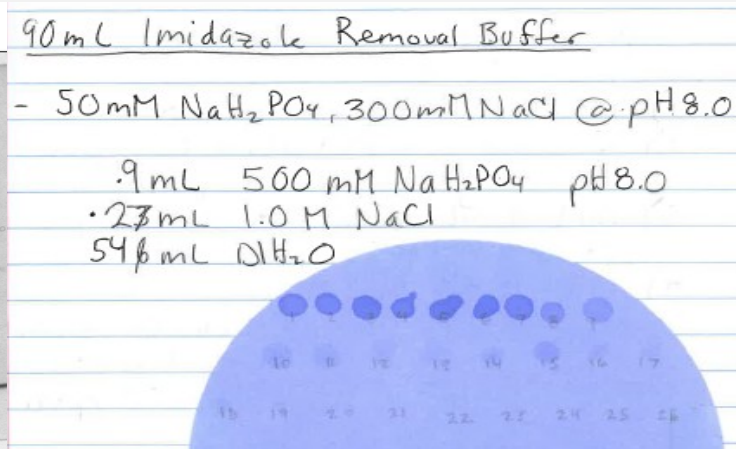 90mL Imidazole Removal Buffer
- 50mM NaH₂PO₄, 300mM NaCl @ pH 8.0
·9mL 500 mM NaH₂PO₄ pH 8.0
·27mL 1.0 M NaCl
54 mL DIH₂O
1 2 3 4 5 6 7 8 9
10 11 12 13 14 15 16 17
18 19 20 21 22 23 24 25 26